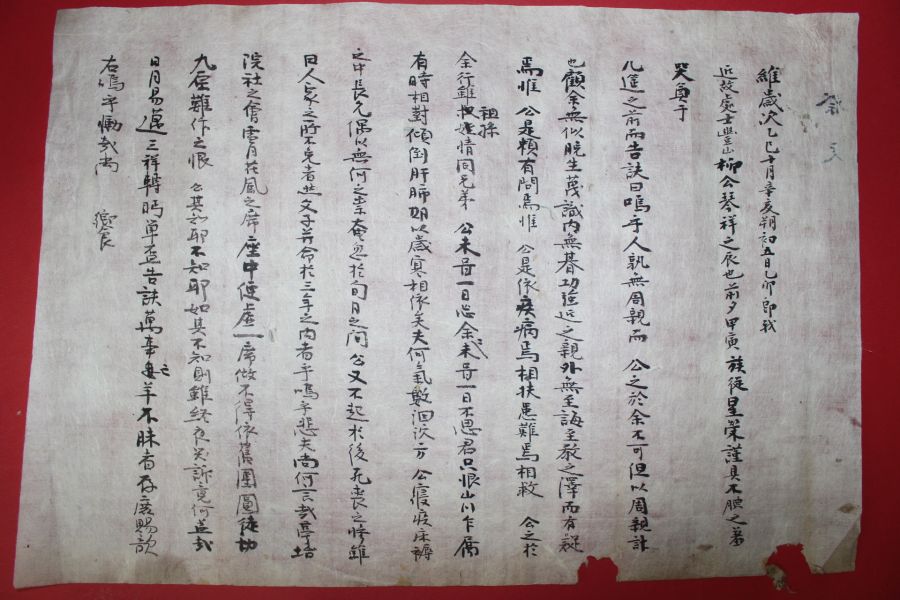 祭文
維歲次乙巳十月辛亥朔初五日乙卯卽我
近故處士豊山柳公琴祥之辰也前夕甲寅族從星榮謹具不腆之着
哭奠于
几筵之前而告訣曰嗚乎人孰無周親而 公之於余不可但以周親計
也顧余無似晩生蔑識內無朞功强近之親外無至誨至敎之澤而有疑
焉惟 公是賴有問焉惟 公是依疾病焉相扶患難焉相救 公之於
余行雖祖孫情同兄弟 公未甞一日忘余余未甞一日不思君只恨山川乍屬
有時相對傾倒肝肺期以歲寒相依矣夫何氣數洄次方 公寢疾床褥
之中長兄偶以無何之祟奄忽於旬月之間公又不起於後死喪之慘雖
曰人家之所不免者豈父子幷命於三年之內者乎嗚乎悲夫尙何言哉
院社之會雪月花風之席座中便虛一席做不得依舊團圓徒切
九原難作之恨 公其知耶不知耶如其不知則雖終夜哭訴竟何益哉
日月易邁三祥轉眄單盃告訣萬事已矣不昧者存庶賜歆
右嗚乎慟哉尙 饗